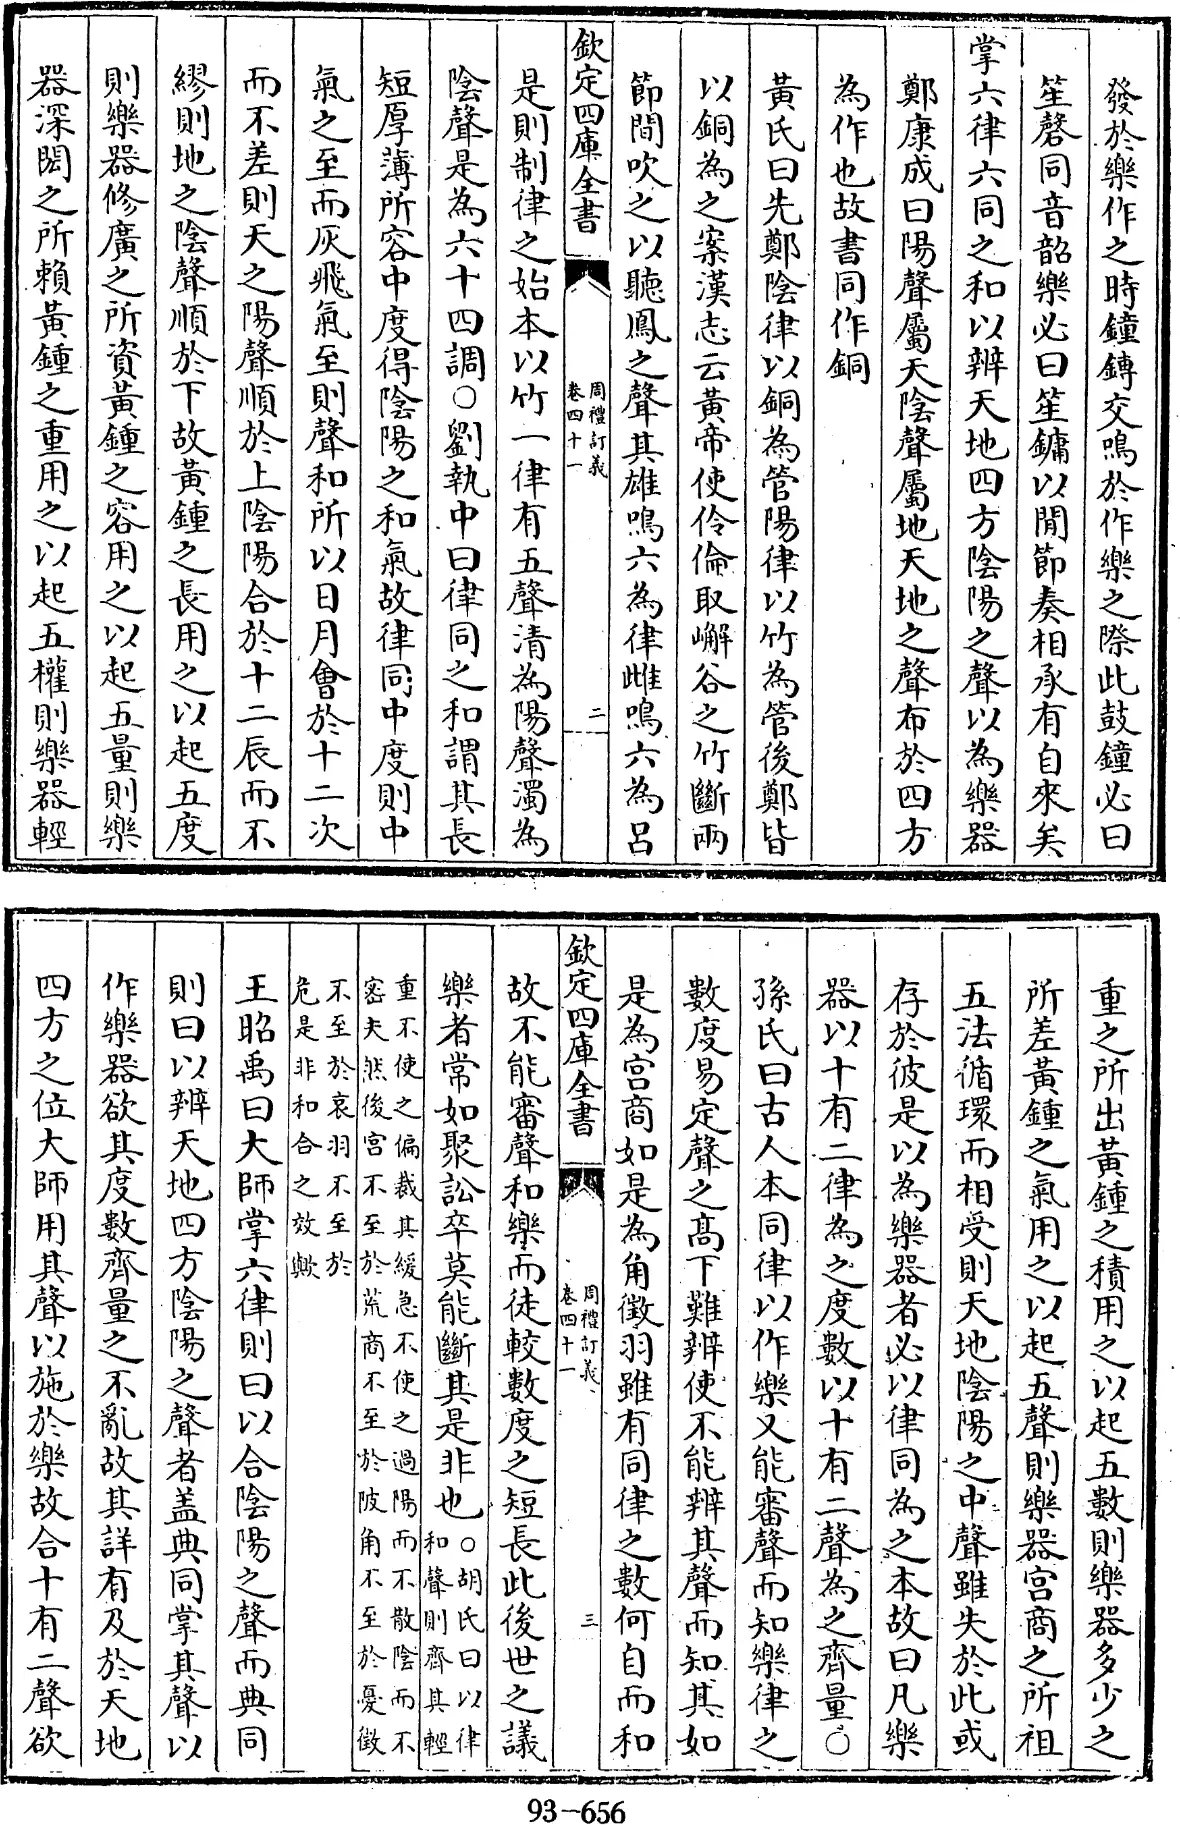 發於樂作之時鐘鏄交鳴於作樂之際此鼓鐘必曰
笙磬同音韶樂必曰笙鏞以間節奏相承有自來矣
掌六律六同之和以辨天地四方隂陽之聲以為樂器
鄭康成曰陽聲屬天隂聲屬地天地之聲布於四方
為作也故書同作銅
黃氏曰先鄭隂律以銅為管陽律以竹為管後鄭皆
以銅為之案漢志云黃帝使伶倫取嶰谷之竹斷兩
節間吹之以聽鳳之聲其雄鳴六為律雌鳴六為呂
欽定四庫全書
周禮訂義
卷四十一
二
是則制律之始本以竹一律有五聲清為陽聲濁為
隂聲是為六十四調○劉執中曰律同之和謂其長
短厚薄所容中度得隂陽之和氣故律同中度則中
氣之至而灰飛氣至則聲和所以日月會於十二次
而不差則天之陽聲順於上隂陽合於十二辰而不
繆則地之隂聲順於下故黃鍾之長用之以起五度
則樂器修廣之所資黃鍾之容用之以起五量則樂
器深閎之所賴黃鍾之重用之以起五權則樂器輕
重之所出黃鍾之積用之以起五數則樂器多少之
所差黃鍾之氣用之以起五聲則樂器宮商之所祖
五法循環而相受則天地隂陽之中聲雖失於此或
存於彼是以為樂器者必以律同為之本故曰凡樂
器以十有二律為之度數以十有二聲為之齊量○
孫氏曰古人本同律以作樂又能審聲而知樂律之
數度易定聲之髙下難辨使不能辨其聲而知其如
是為宮商如是為角徵羽雖有同律之數何自而和
欽定四庫全書
周禮訂義
卷四十一
三
故不能審聲和樂而徒較數度之短長此後世之議
樂者常如聚訟卒莫能斷其是非也○胡氏曰以律
和聲則齊其輕
重不使之偏裁其緩急不使之過陽而不散隂而不
密夫然後宮不至於荒商不至於陂角不至於憂徵
不至於哀羽不至於
危是非和合之效歟
王昭禹曰大師掌六律則曰以合隂陽之聲而典同
則曰以辨天地四方隂陽之聲者盖典同掌其聲以
作樂器欲其度數齊量之不亂故其詳有及於天地
四方之位大師用其聲以施於樂故合十有二聲欲
93-656